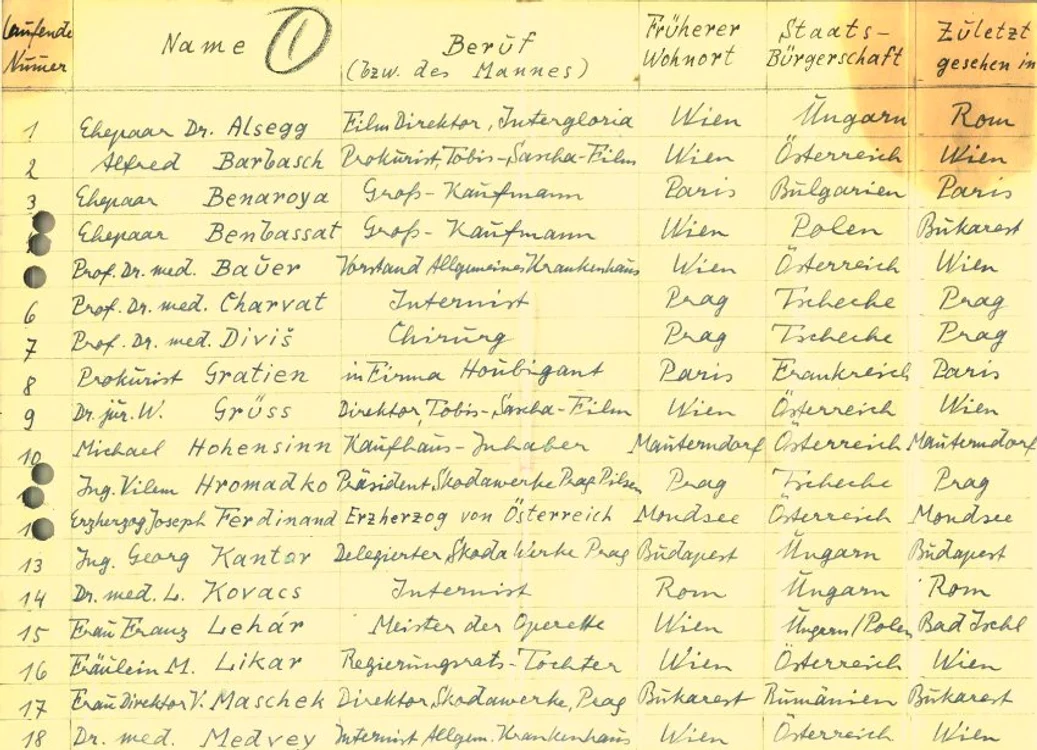 Laufende Numer Name 1 Beruf (bzw. des Mannes) Früherer Wohnort Staats-Bürgerschaft Zuletzt gesehen in
1 Ehepaar Dr. Alsegg Film Direktor, Intergloria Wien Ungarn Rom
2 Alfred Barbasch Prokurist, Tobis-Sascha-Film Wien Österreich Wien
3 Ehepaar Benaroya Groß-Kaufmann Paris Bulgarien Paris
Ehepaar Benbassat Groß-Kaufmann Wien Polen Bukarest
Prof. Dr. med. Bauer Vorstand Allgemeines Krankenhaus Wien Österreich Wien
6 Prof. Dr. med. Charvat Internist Prag Tscheche Prag
7 Prof. Dr. med. Diviš Chirurg Prag Tscheche Prag
8 Prokurist Gratien in Firma Houbigant Paris Frankreich Paris
9 Dr. jur. W. Grüss Direktor, Tobis-Sascha-Film Wien Österreich Wien
10 Michael Hohensinn Kaufhaus-Inhaber Mauterndorf Österreich Mauterndorf
1 Ing. Vilem Hromadko Präsident, Skodawerke Prag Pilsen Prag Tscheche Prag
1 Erzherzog Joseph Ferdinand Erzherzog von Österreich Mondsee Österreich Mondsee
13 Ing. Georg Kantor Delegierter, Skoda Werke Prag Budapest Ungarn Budapest
14 Dr. med. L. Kovacs Internist Rom Ungarn Rom
15 Frau Franz Lehár Meister der Operette Wien Ungarn/Polen Bad Ischl
16 Fräulein M. Likar Regierungsrats-Tochter Wien Österreich Wien
17 Frau Direktor V. Maschek Direktor, Skodawerke, Prag Bukarest Rumänien Bukarest
18 Dr. med. Medvey Internist Allgem. Krankenhaus Wien Österreich Wien